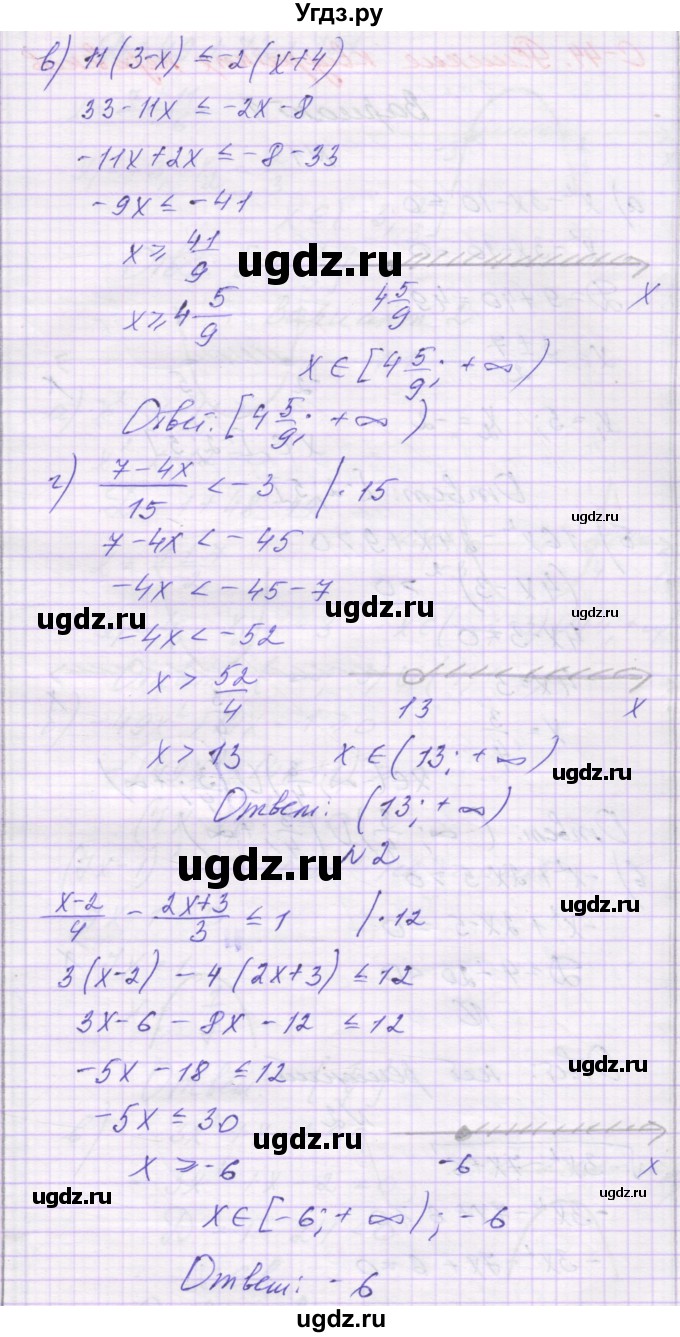 Угдз.ру
в) 11(3-x) ≤ -2(x+4)
33-11x ≤ -2x-8
-11x+2x ≤ -8-33
-9x ≤ -41
x ≥ 41/9
ugdz.ru ugdz.ru
x ≥ 4 5/9 4 5/9 x
x ∈ [4 5/9; +∞)
Ответ: [4 5/9; +∞)
г) (7-4x)/15 < -3 /·15
ugdz.ru
7-4x < -45
-4x < -45-7
ugdz.ru ugdz.ru ugdz.ru
-4x < -52
x > 52/4 13 x
x > 13 x ∈ (13; +∞)
ugdz.ru
Ответ: (13; +∞)
N2
ugdz.ru
(x-2)/4 - (2x+3)/3 ≤ 1 /·12
ugdz.ru
3(x-2) - 4(2x+3) ≤ 12
3x-6-8x-12 ≤ 12
-5x-18 ≤ 12
ugdz.ru
-5x ≤ 30
ugdz.ru
x ≥ -6 -6 x
ugdz.ru ugdz.ru
x ∈ [-6; +∞); -6
Ответ: -6
ugdz.ru
ugdz.ru